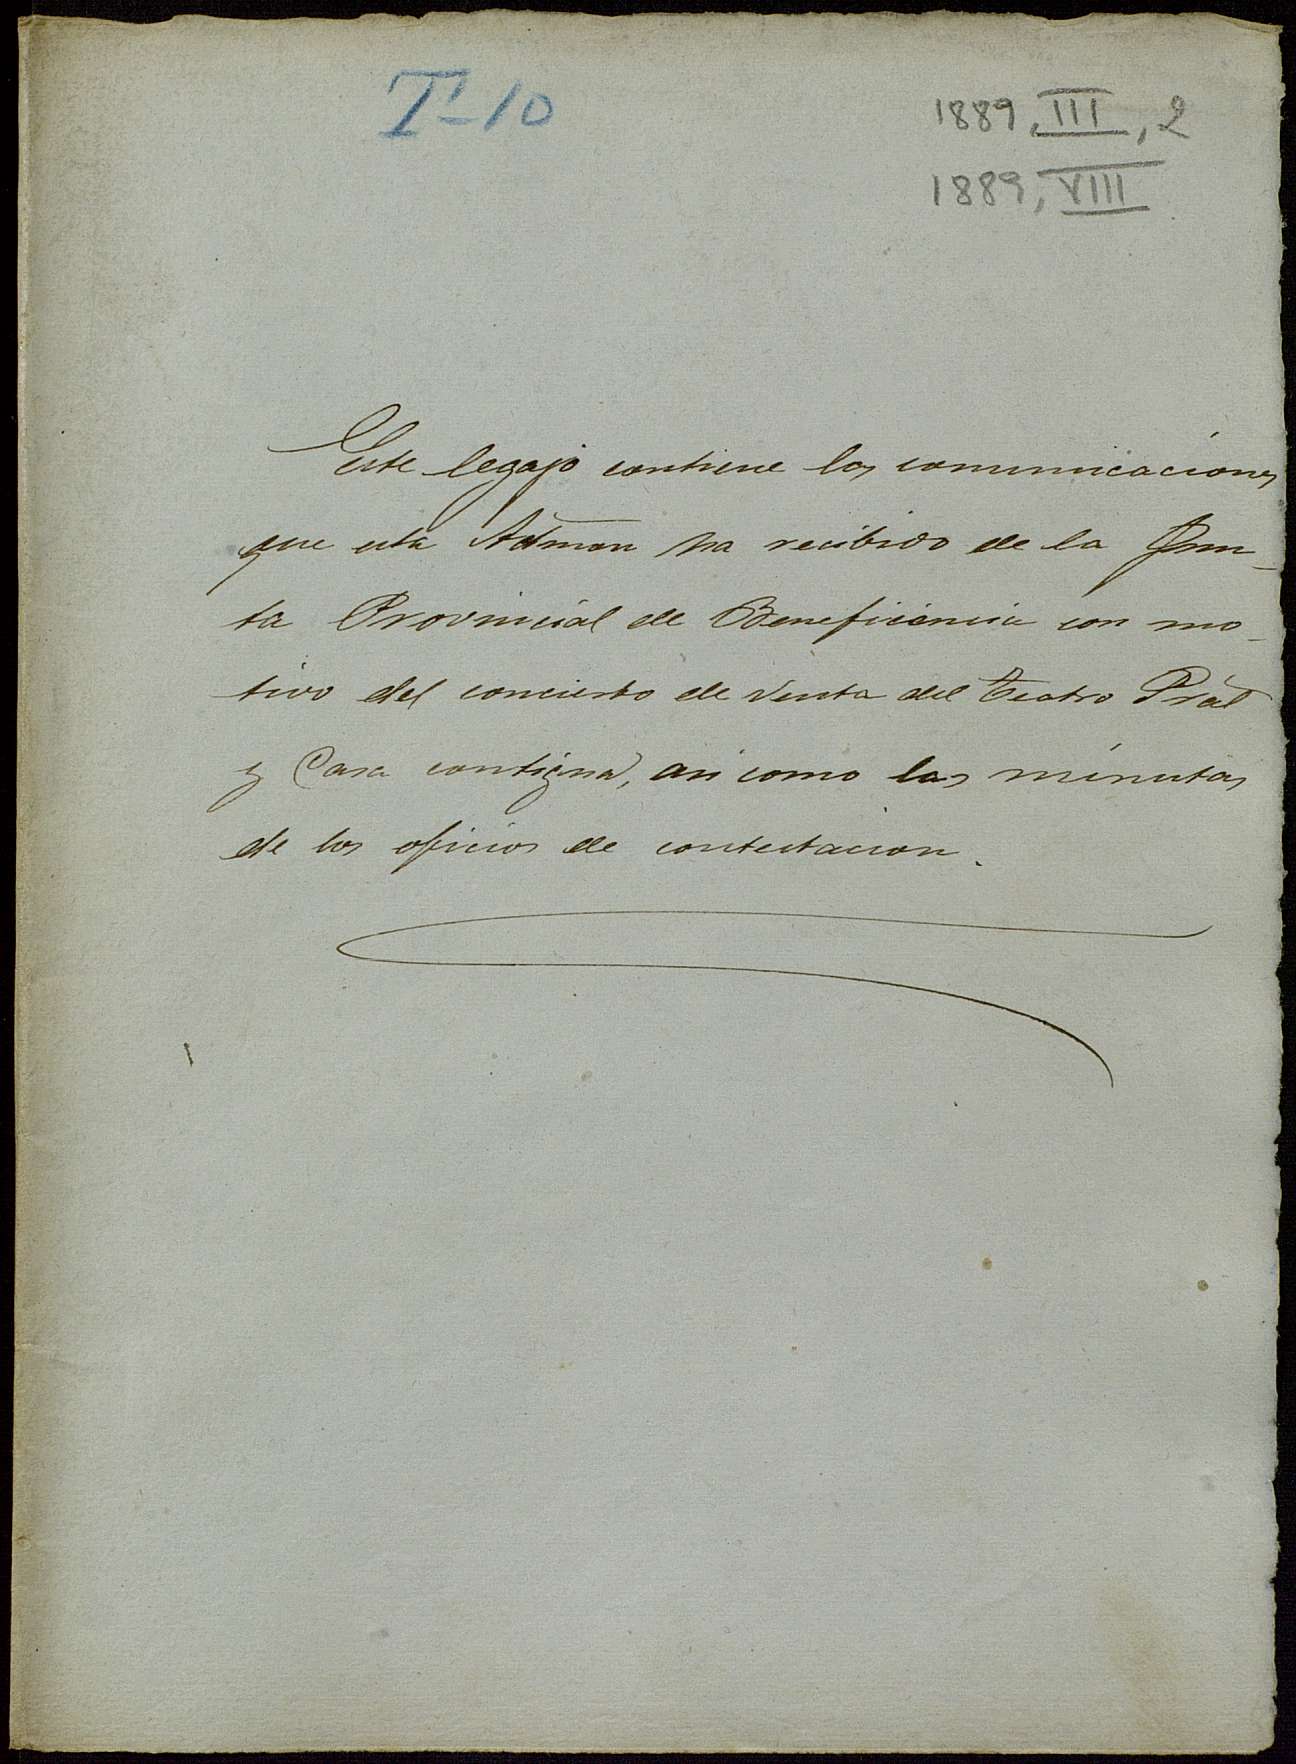 I-10
1889, III, 2
1889, VIII
Este legajo contiene las comunicaciones
que esta Admon ha recibido de la Jun-
ta Provincial de Beneficencia con mo-
tivo del concierto de venta del Teatro Pral
y Casa contigua, asi como las minutas
de los oficios de contestacion.